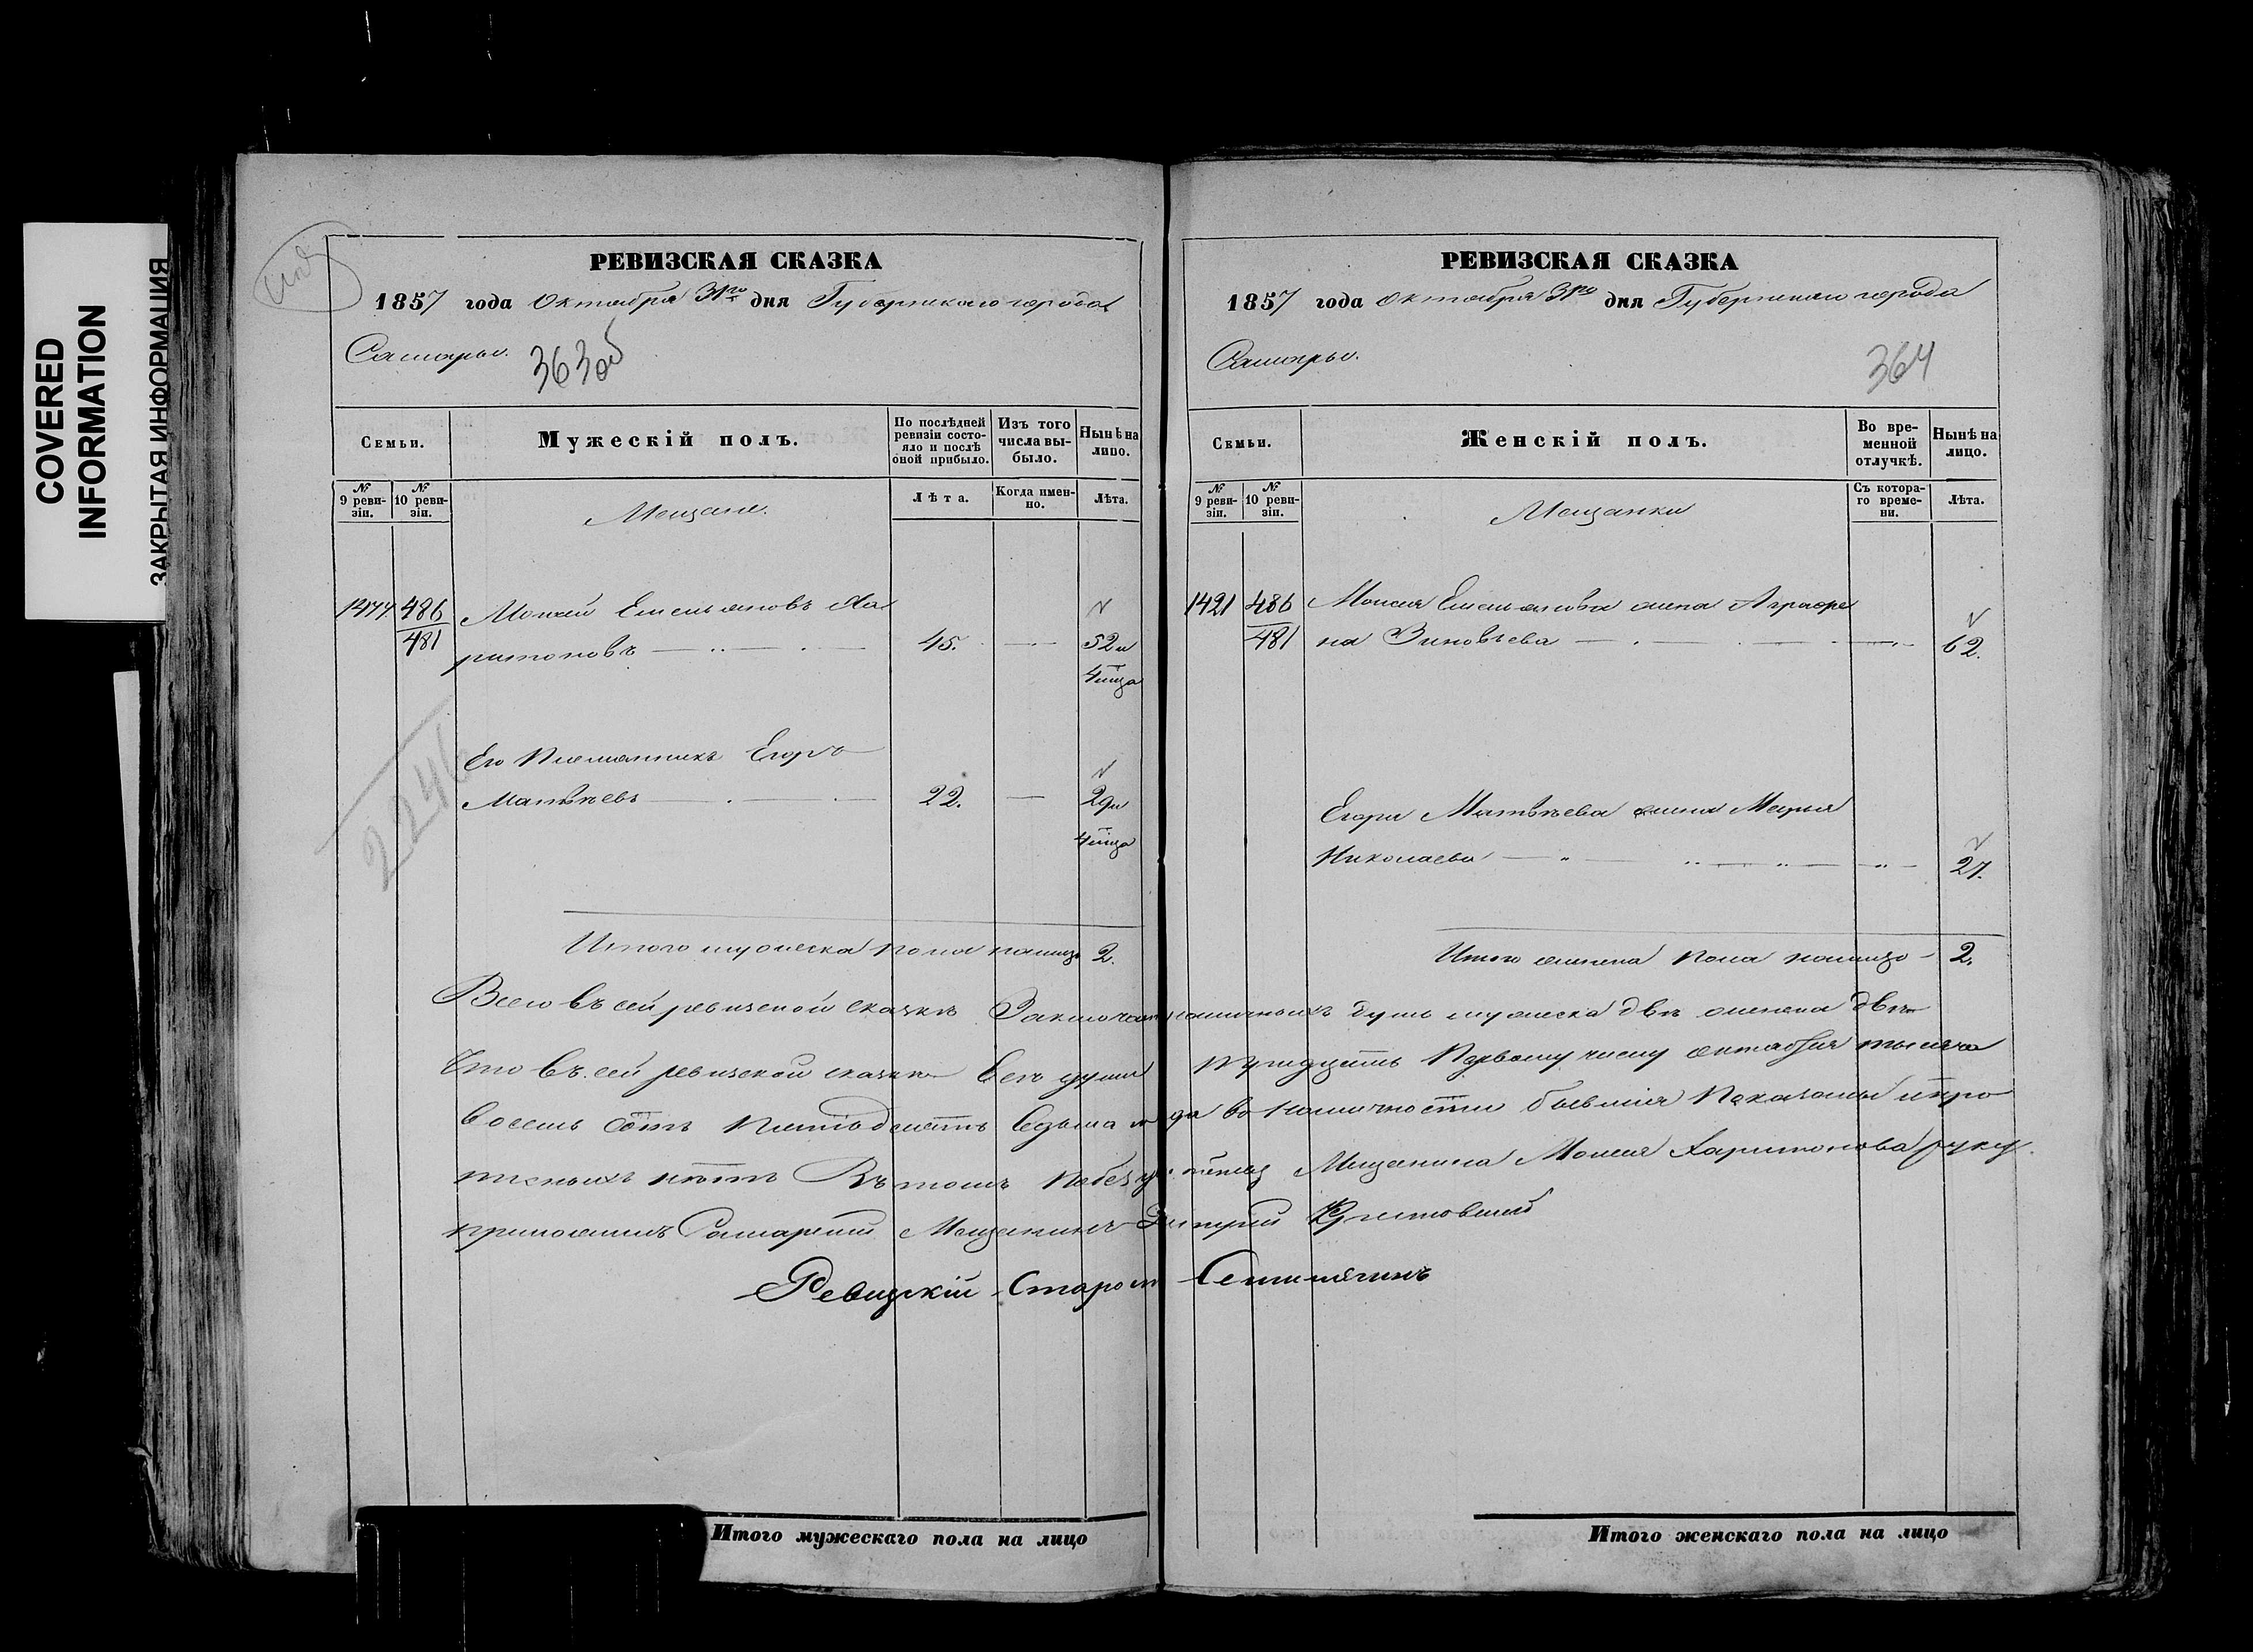 COVERED
INFORMATION
ЗАКРЫТАЯ ИНФОРМАЦИЯ
РЕВИЗСКАЯ СКАЗКА
1857 года Октября 31го дня Губернскаго города
Самары.
363об
Семьи.
Мужескій полъ.
По послѣдней ревизіи состояло и послѣ оной прибыло.
Изъ того числа выбыло.
Нынѣ на лицо.
№ 9 ревизіи.
№ 10 ревизіи.
Мещане.
Лѣта.
Когда именно.
Лѣта.
486 Моисей Емельяновъ Ха
481 ритоновъ 45. 52 и
4 мца
Его Племянникъ Егоръ
Матвѣевъ 22. 29 и
4 мца
2246
Итого мужеска пола налицо 2.
РЕВИЗСКАЯ СКАЗКА
1857 года Октября 31го дня Губернскаго города
Самары.
364
Семьи.
Женскій полъ.
Во временной отлучкѣ.
Нынѣ на лицо.
№ 9 ревизіи.
№ 10 ревизіи.
Мещанки
Съ котораго времени.
Лѣта.
1421 486 Моисея Емельянова жена Аграфе
481 на Зиновьева 62.
Егора Матвѣева жена Марья
Николаева 27.
Итого женска пола налицо 2.
Всего въ сей ревизской сказкѣ Заключается наличныхъ душъ мужеска двѣ женска двѣ
Что въ сей ревизской сказкѣ всѣ души Тридцать Первому числу октября тысяча
восемь сотъ Пятьдесятъ Седьма года во наличности бывшія Показаны и про
писныхъ нѣтъ Въ томъ Мещанина Моисея Харитонова руку
приложилъ Самарскій Мещанинъ Дмитрій
Ревизскій Староста
Итого мужескаго пола на лицо
Итого женскаго пола на лицо